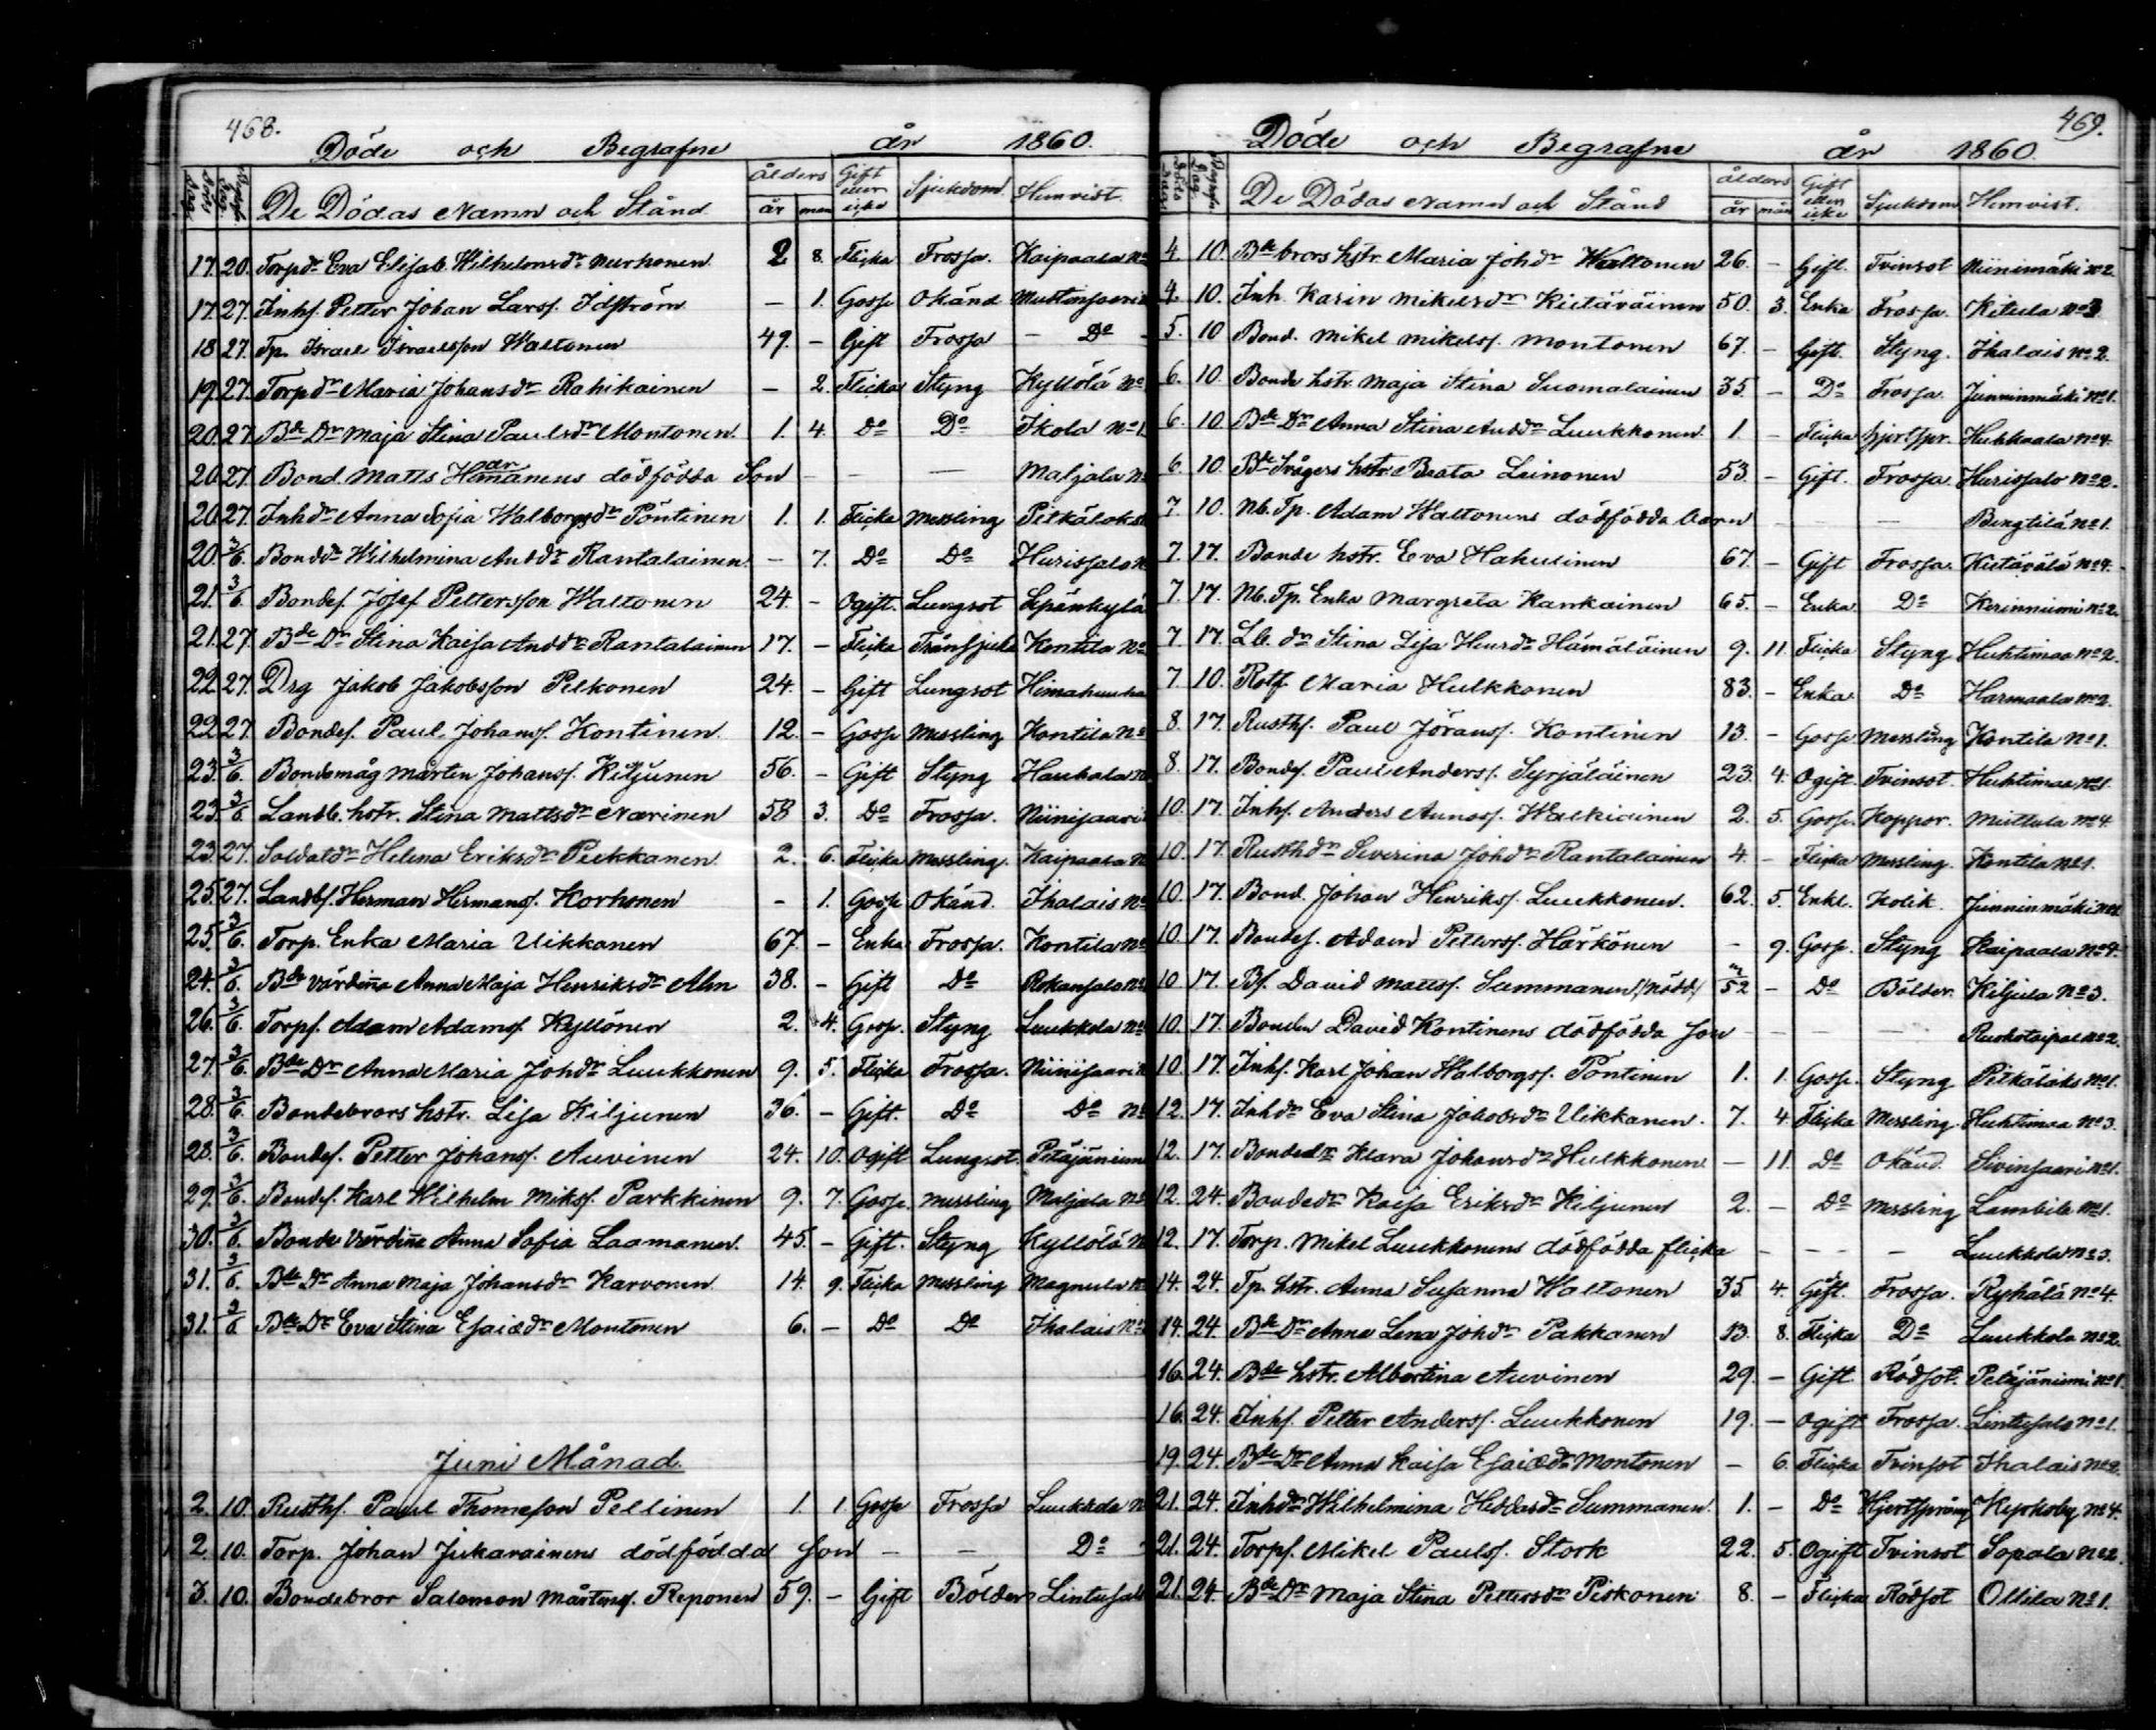 468.
Döde och Begrafne år 1860.
De Dödas Namn och Stånd ålders år mån Gift eller icke Sjukdom. Hemvist.
17. 20. Torpdr Eva Elisab. Wilhelmsdr Murhonen. 2 8. Flicka Frossa. Kaipaala No
17. 27. Inhs. Petter Johan Larss. Idström — 1. Gosse Okänd Muttinsaari
18 27. Tp. Israel Israelsson Waltonen 49. — Gift Frossa — Do —
19. 27. Torpdr Maria Johansdr Rahikainen — 2. Flicka Styng Kyllölä No
20. 27. Bde Dr Maja Stina Paulsdr Montonen. 1. 4. Do Do Ikola No 1.
20. 27. Bond. Matts dödfödda Son — — — Maljala No
20. 27. Inhdr Anna Sofia Walborgsdr Pöntinen 1. 1. Flicka Messling Pitkälaks
20. 3/6. Bondedr Wilhelmina Anddr Rantalainen. — 7. Do Do Hurissalo N
21. 3/6. Bondes. Josef Pettersson Waltonen 24. — Ogift. Lungsot Sepänkylä
21. 27. Bde Dr Stina Kaisa Anddr Rantalainen 17. — Flicka Trånsjuka Kontila No
22. 27. Drg Jakob Jakobsson Pelkonen 24. — Gift Lungsot Himahuuha
22. 27. Bondes. Paul Johanss. Kontinen. 12. — Gosse Messling Kontila No
23. 3/6. Bondemåg Mårten Johanss. Kiljunen 56. — Gift Styng Haukala N
23. 3/6. Landb. hstr. Stina Mattsdr Narinen 58 3. Do Frossa. Niinisaari
23. 27. Soldatdr Helena Eriksdr Pukkanen. 2. 6. Flicka Messling. Kaipaala N
25. 27. Landbs. Herman Hermanss. Korhonen — 1. Gosse Okänd. Ihalais No
25. 3/6. Torp. Enka Maria Uikkanen 67. — Enka Frossa. Kontila No
24. 3/6. Bde värdina Anna Maja Henriksdr Alm 38. — Gift Do Rokansalo No
26. 3/6. Torps. Adam Adamss. Kyllönen 2. 4. Gosse. Styng Luukkola No
27. 3/6. Bde Dr Anna Maria Johdr Luukkonen 9. 5. Flicka Frossa. Niinisaari
28. 3/6. Bondebrors hstr. Lisa Kiljunen 36. — Gift. Do Do No
28. 3/6. Bondes. Petter Johanss. Auvinen 24. 10. Ogift Lungsot. Petäjäniemi
29. 3/6. Bondes. Karl Wilhelm Mikss. Parkkinen 9. 7. Gosse. Messling Maljala No
30. 3/6. Bonde Värdina Anna Sofia Laamanen. 45. — Gift. Styng Kyllölä N
31. 3/6. Bde Dr Anna Maja Johansdr Karvonen 14. 9. Flicka Messling Magnula No
31. 3/6. Bde Dr Eva Stina Esaiædr Montonen 6. — Do Do Ihalais No
Juni Månad.
2. 10. Rusths. Paul Thomasson Pellinen 1. 1. Gosse Frossa Luukkola No
2. 10. Torp. Johan Jukarainens dödfödda Son — — Do
3. 10. Bondebror Salomon Mårtenss. Reponen 59. — Gift Bölder Lintusalo
469.
Döde och Begrafne år 1860.
De Dödas Namn och Stånd ålders år mån Gift eller icke Sjukdom Hemvist.
4. 10. Bde brors hstr. Maria Johdr Waltonen 26. — Gift. Tvinsot Niinimäki No 2.
4. 10. Inh. Karin Mikelsdr Kietäväinen 50. 3. Enka Frossa. Kitula No 3
5. 10 Bond. Mikel Mikelss. Montonen 67. — Gift. Styng. Ihalais No 2.
6. 10. Bonde hstr. Maja Stina Suomalainen 35. — Do Frossa. Junninmäki No 1.
6. 10. Bde Dr Anna Stina Anddr Luukkonen. 1. — Flicka Hjertspr. Hukkaala No 4.
6. 10. Bde Svågers hstr. Beata Leinonen 53. — Gift. Frossa. Hurissalo No 2.
7. 10. Nb. Tp. Adam Waltonens dödfödda barn — — — Bengtilä No 1.
7. 17. Bonde hstr. Eva Hakulinen 67. — Gift Frossa. Kietävälä No 4.
7. 17. Nb. Tp. Enka Margreta Kankainen 65. — Enka Do Kerinniemi No 2.
7. 17. Lb. dr Stina Lisa Henrdr Hämäläinen 9. 11. Flicka Styng Huhtimaa No 2.
7. 10. Rotf. Maria Hulkkonen 83. — Enka Do Harmaala No 2.
8. 17. Rusths. Paul Jöranss. Kontinen 13. — Gosse Messling Kontila No 1.
8. 17. Bondes. Paul Anderss. Syrjäläinen 23. 4. Ogift. Tvinsot. Huhtimaa No 1.
10. 17. Inhs. Anders Annass. Walkiainen 2. 5. Gosse. Koppor. Miettula No 4.
10. 17. Rusthdr Severina Johdr Rantalainen 4. — Flicka Messling. Kontila No 1.
10. 17. Bond. Johan Henrikss. Luukkonen. 62. 5. Enkl. Kolik. Junninmäki No
10. 17. Bondes. Adam Petterss. Härkönen — 9. Gosse. Styng Kaipaala No 4.
10 17. Bs. David Mattss. Summanen /Nödd./ 2/52 — Do Bölder. Kiljula No 3.
10. 17. Bonden David Kontinens dödfödda Son — — — Ruokotaipal No 2.
10. 17. Inhs. Karl Johan Walborgss. Pöntinen 1. 1. Gosse. Styng Pitkälaks No 1.
12. 17. Inhdr Eva Stina Jakobsdr Uikkanen. 7. 4. Flicka Messling. Huhtimaa No 3.
12. 17. Bondedr Klara Johansdr Hulkkonen — 11. Do Okänd. Sivinsaari No 1.
12. 24. Bondedr Kaisa Eriksdr Kiljunen 2. — Do Messling Lambila No 1.
12. 17. Torp. Mikel Luukkonens dödfödda flicka — — — — Luukkola No 3.
14. 24. Tp. hstr. Anna Susanna Waltonen 35 4. Gift. Frossa. Ryhälä No 4.
14. 24. Bde Dr Anna Lena Johdr Pakkanen 13. 8. Flicka Do Luukkola No 2.
16. 24. Bde hstr. Albertina Auvinen 29. — Gift Rödsot. Petäjäniemi No 1.
16. 24. Inhs. Petter Anderss. Luukkonen 19. — Ogift Frossa. Lintusalo No 1.
19. 24. Bde Dr Anna Kaisa Esaiædr Montonen — 6. Flicka Tvinsot Ihalais No 2.
21. 24. Inhdr Wilhelmina Heddasdr Summanen. 1. — Do Hjertsprång Kyrkoby No 4.
21. 24. Torps. Mikel Paulss. Stork 22. 5. Ogift Tvinsot Sopala No 2.
21. 24. Bde Dr Maja Stina Pettersdr Piskonen 8. — Flicka Rödsot Ollila No 1.